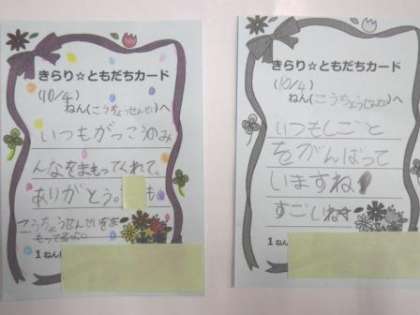 きらり☆ともだちカード
(10/4)
ねん(こうちょうせんせい)へ
いつもがっこうのみ
んなをまもってくれて、
ありがとう。 も
こうちょうせんせいをま
もってるよ。
1ねん
きらり☆ともだちカード
(10/4)
ねん(こうちょうせんせい)へ
いつもしごと
をがんばって
いますね
すごいね
1ねん